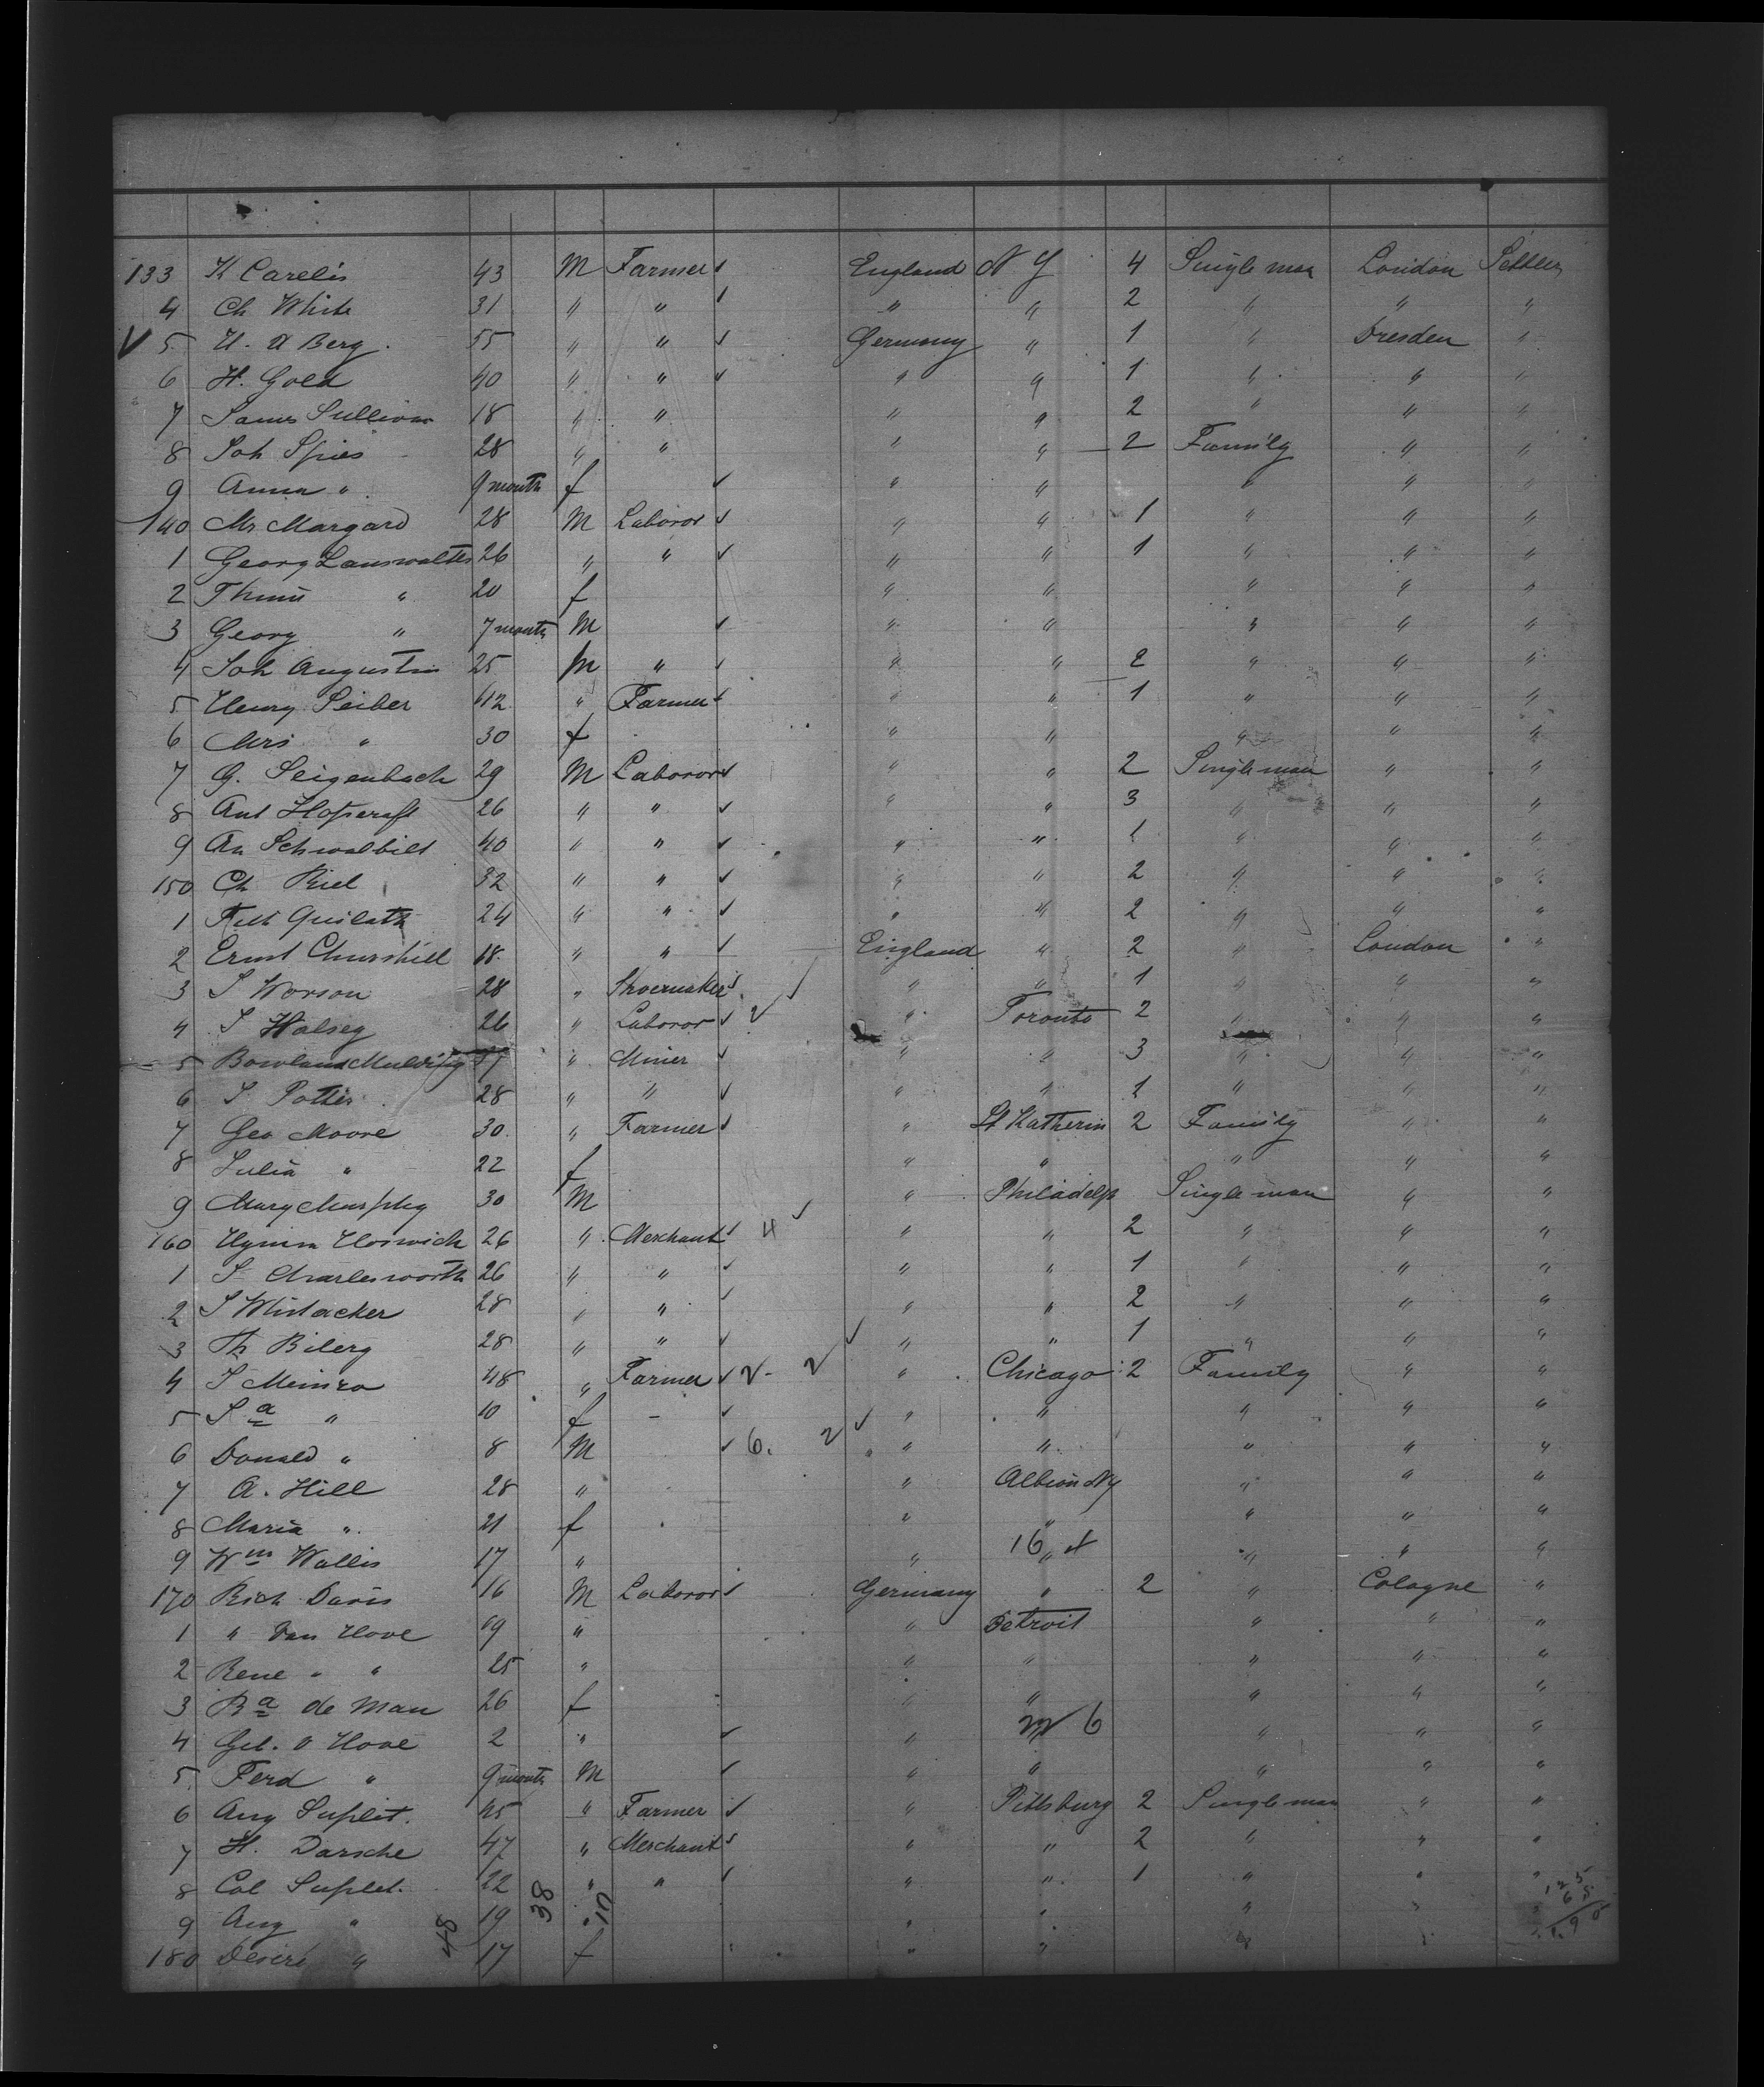 133 K Carelis 43 M Farmer ✓ England N Y 4 Single man London Settler
4 Ch White 31 " " ✓ " " 2 " " "
✓ 5 U. A Berg. 55 " " ✓ Germany " 1 " Dresden "
6 H. Gold 40 " " ✓ " " 1 " " "
7 James Sullivan 18 " " " " 2 " " "
8 Joh Spies 28 " " " " 2 Family " "
9 Anna " 9 month f ✓ " " " " "
140 Mr Margard 28 M Laboror ✓ " " 1 " " "
1 Georg Lauswalter 26 " " ✓ " " 1 " " "
2 " 20 f " " " " "
3 Georg " 7 month M ✓ " " " " "
4 Joh Augustin 25 M " ✓ " " 2 " " "
5 Henry Seiber 42 " Farmer ✓ " " 1 " " "
6 Mrs " 30 f " " " " "
7 G. Seigenbach 29 M Laboror ✓ " " 2 Single man " "
8 Ant Hopcraft 26 " " ✓ " " 3 " " "
9 An Schwalbild 40 " " ✓ " " 1 " " "
150 Ch Riel 32 " " ✓ " " 2 " " "
1 24 " " ✓ " " 2 " " "
2 Ernst Churshill 18 " " ✓ England " 2 " London "
3 S Worson 28 " Shoemaker ✓ ✓ " " 1 " " "
4 S Halsey 26 " Laboror ✓ 2 " Toronto 2 " " "
5 Bowland 37 " Miner ✓ " " 3 " " "
6 S Potter 28 " " ✓ " " 1 " " "
7 Geo Moore 30 " Farmer ✓ " St Katherin 2 Family " "
8 Julia " 22 f " " " " "
9 Mary Murphy 30 M ✓ " Philadelp Single man " "
160 Hymm Horwich 26 " Merchant ✓ 4 " " 2 " " "
1 S Charlesworth 26 " " ✓ " " 1 " " "
2 S Whitacker 28 " " ✓ " " 2 " " "
3 Th Bilerg 28 " " ✓ ✓ " " 1 " " "
4 S Meinra 48 " Farmer ✓ 2 - 2 " Chicago 2 Family " "
5 S a " 10 f - ✓ ✓ " " " " "
6 Donald " 8 M ✓ 6. 2 " " " " "
7 A. Hill 28 " " Albion Ny " " "
8 Maria " 21 f " " " " "
9 Wm Wallis 17 " " 16 " " "
170 Rich Davis 16 M Laboror ✓ Germany " 2 " Cologne "
1 " Van Hove 19 " " Detroit " " "
2 Rene " " 25 " " " " " "
3 Ba de Man 26 f " " " " "
4 Gel. v Hove 2 " ✓ " 6 " " "
5 Ferd " 9 month M ✓ " " " " "
6 Aug Suplit. 45 " Farmer ✓ " Pittsburg 2 Single man " "
7 H. Darsche 47 " Merchant ✓ " " 2 " " "
8 Col Suplet. 22 " " ✓ " " 1 " " "
9 Aug " 19 " " " " "
180 Desire " 17 f " " "
48 38 10